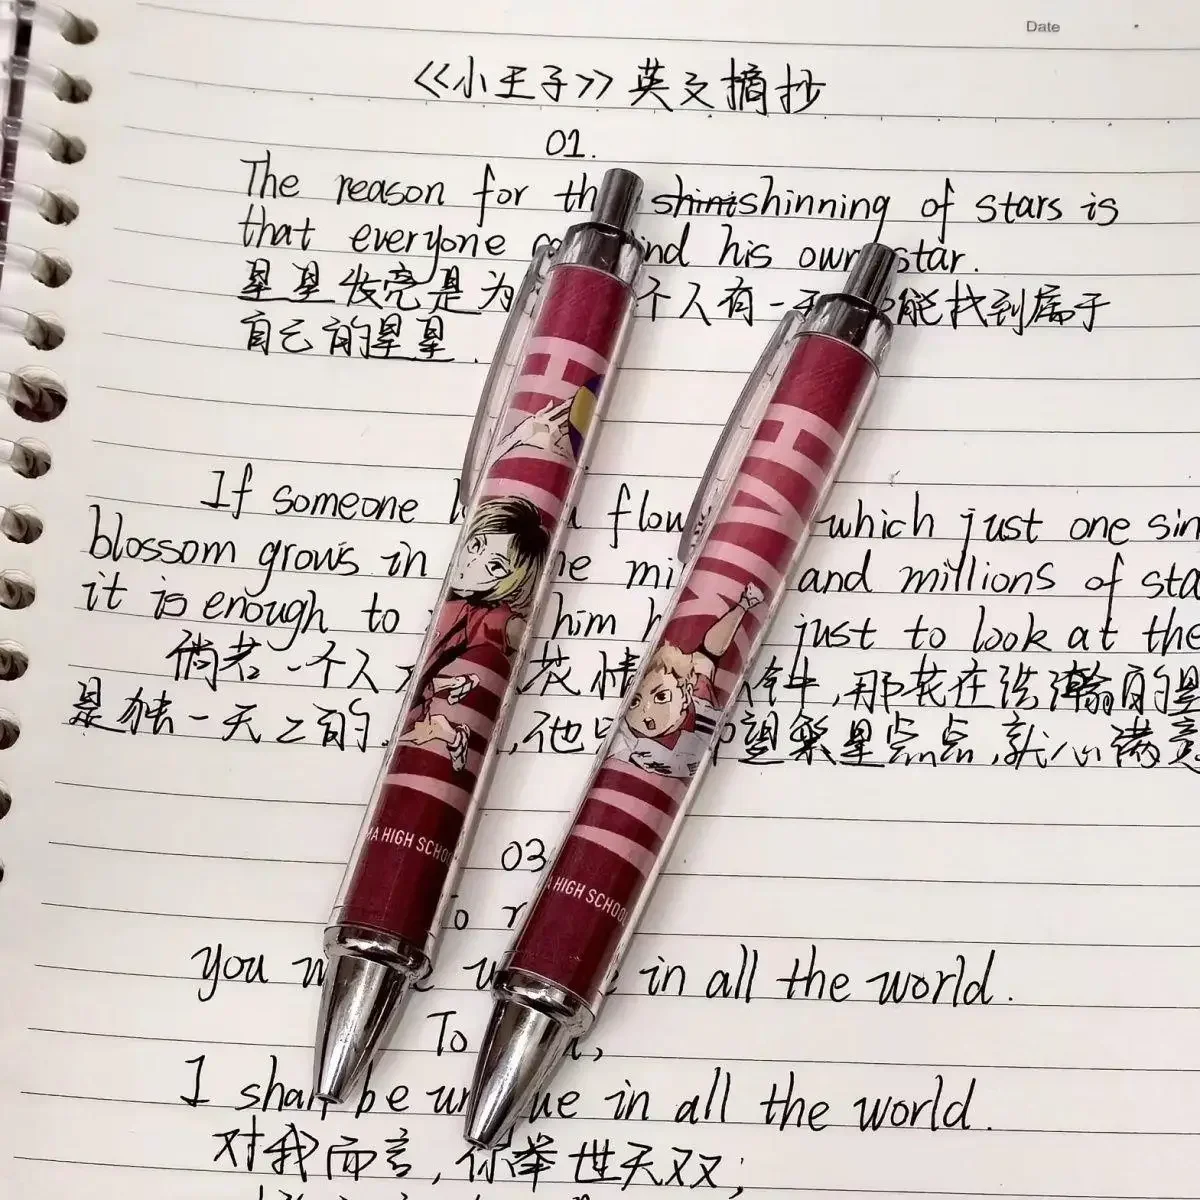 Date
《小王子》英文摘抄
01.
The reason for th shintshinning of stars is
that everyone ind his own star.
星星发亮是为 个人有一天 能找到属于
自己的星星.
If someone l flow which just one sin
blossom grows in he mi and millions of sta
it is enough to him h just to look at the
倘若一个人 花 情 钟,那花在浩瀚的星
是独一无二的. ,他 望繁星点点,就心满意
03
To
you in all the world.
To ,
I shall be un ue in all the world.
对我而言,你举世无双;
MA HIGH SCHOO
A HIGH SCHOOL